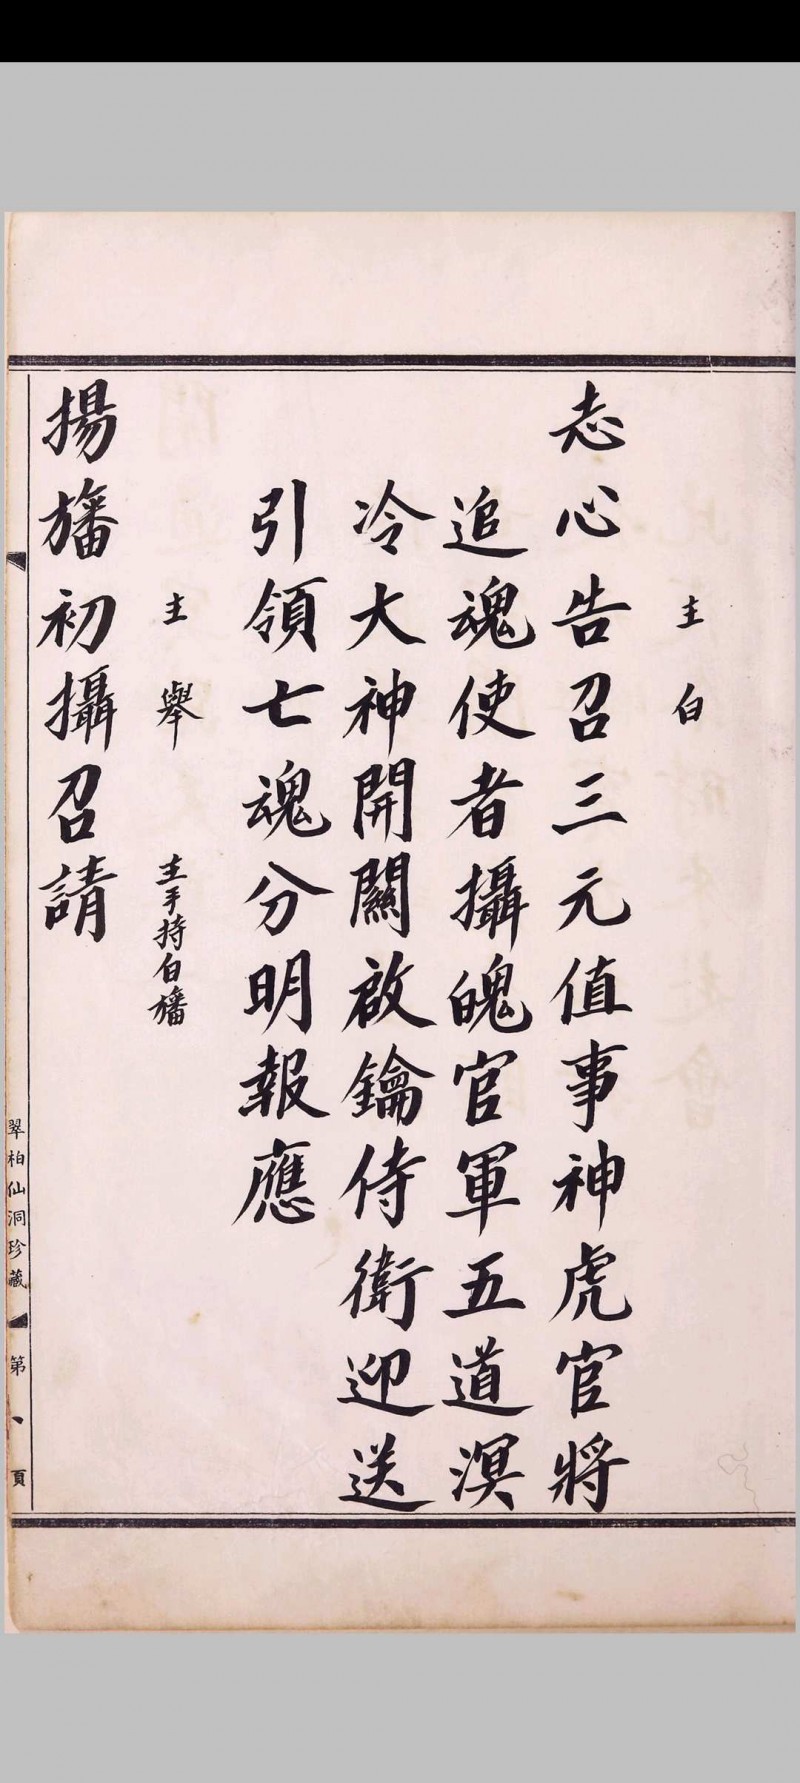 主白
志心告召三元值事神虎官將
追魂使者攝魄官軍五道溟
冷大神開關啟鑰侍衛迎送
引領七魂分明報應
主舉 主手持白旛
揚旛初攝召請
翠柏仙洞珍藏 第、頁